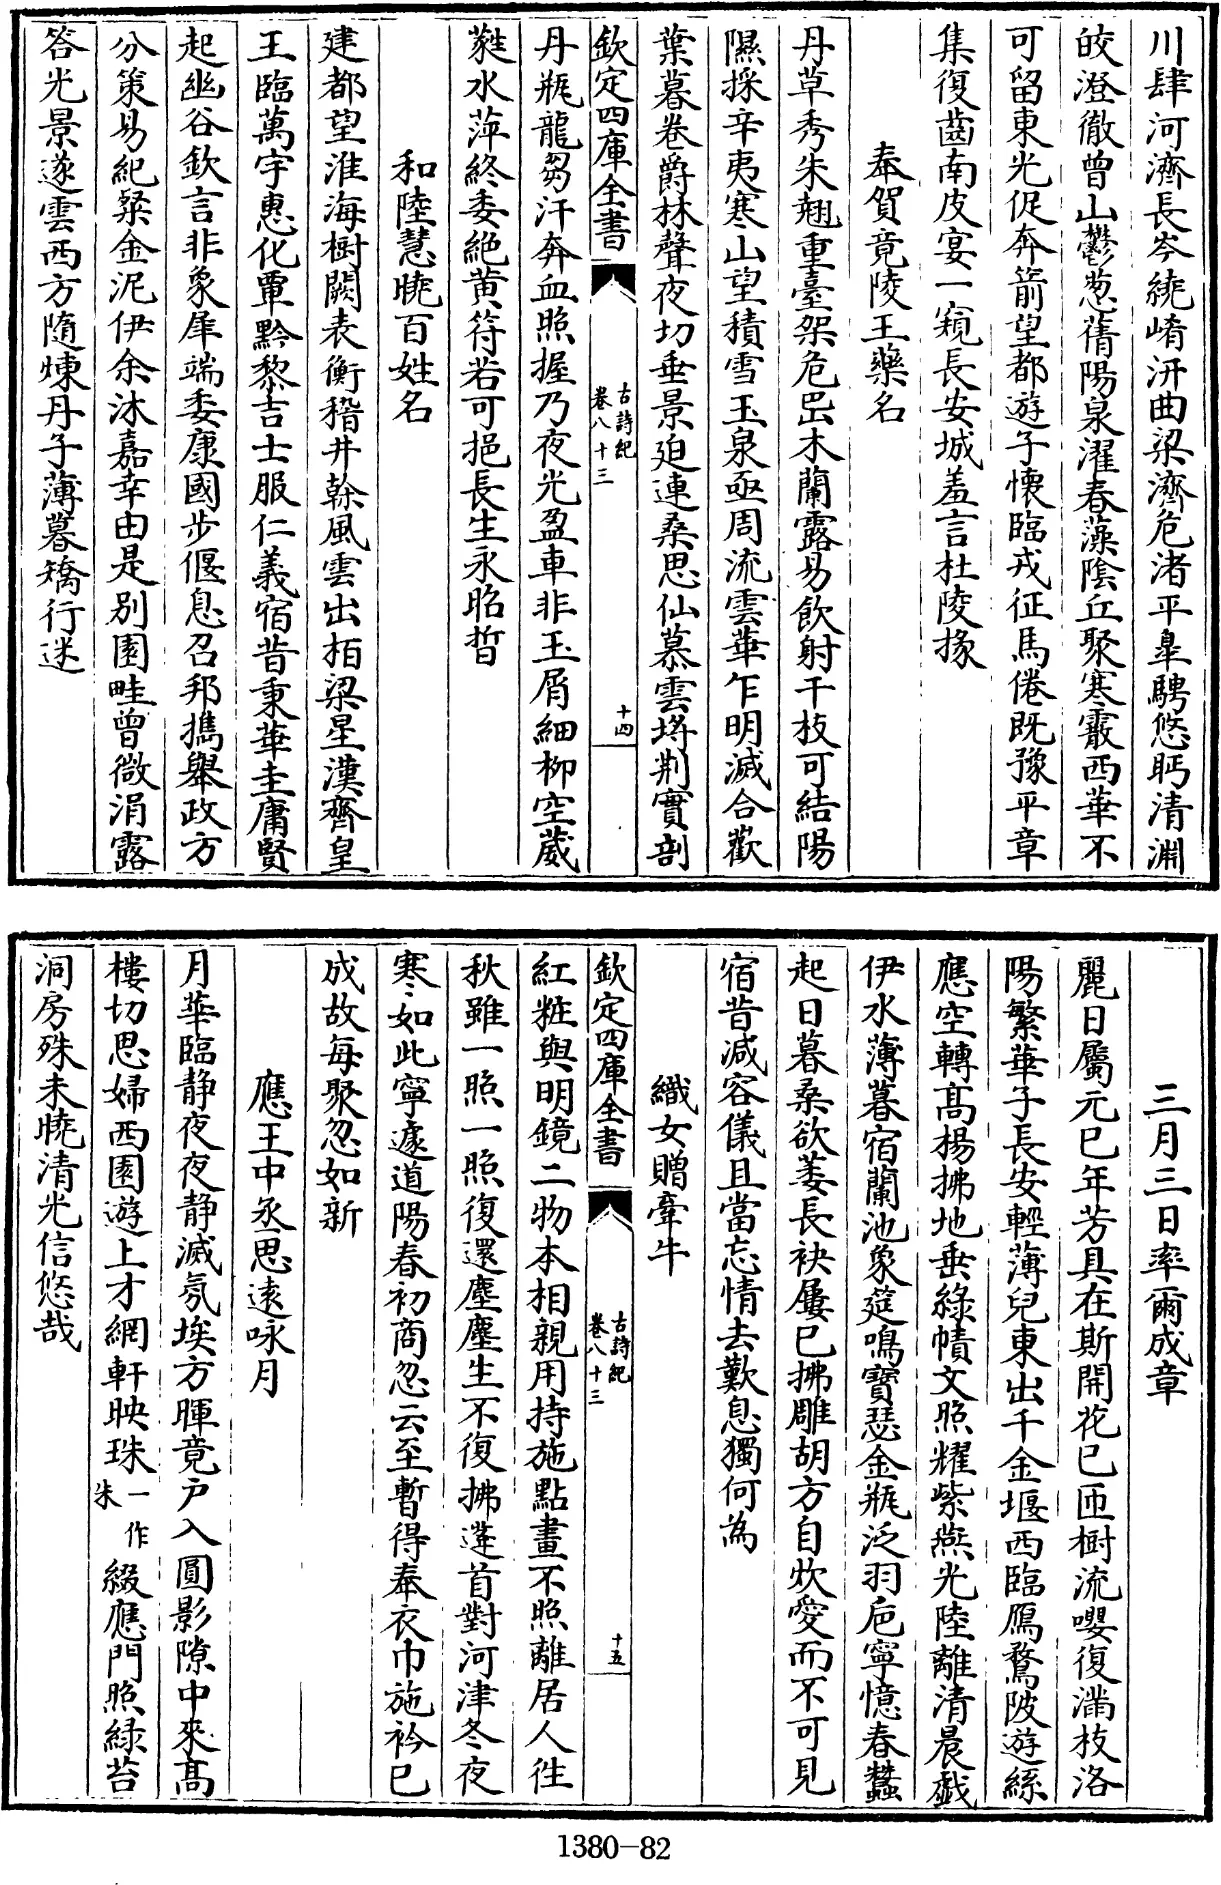 川肆河濟長岑繞崤汧曲梁濟危渚平臯騁悠眄清淵
皎澄徹曾山鬱葱蒨陽泉濯春藻陰丘聚寒霰西華不
可留東光促奔箭望都遊子懷臨戎征馬倦既豫平章
集復齒南皮宴一窺長安城羞言杜陵掾
奉賀竟陵王藥名
丹草秀朱翹重臺架危岊木蘭露易飲射干枝可結陽
隰採辛夷寒山望積雪玉泉亟周流雲華乍明滅合歡
葉暮卷爵林聲夜切垂景迫連桑思仙慕雲埒荆實剖
欽定四庫全書
古詩紀
卷八十三
十四
丹瓶龍芻汗奔血照握乃夜光盈車非玉屑細柳空葳
蕤水萍終委絶黄符若可挹長生永昭晢
和陸慧曉百姓名
建都望淮海樹闕表衡稽井榦風雲出栢梁星漢齊皇
王臨萬宇惠化覃黔黎吉士服仁義宿昔秉華圭庸賢
起幽谷欽言非象犀端委康國步偃息召邦攜舉政方
分策易紀粲金泥伊余沐嘉幸由是别園畦曾微涓露
答光景遂雲西方隨煉丹子薄暮矯行迷
三月三日率爾成章
麗日屬元巳年芳具在斯開花已匝樹流嚶復滿枝洛
陽繁華子長安輕薄兒東出千金堰西臨鴈鶩陂遊絲
應空轉髙楊拂地垂緑幘文照耀紫燕光陸離清晨戲
伊水薄暮宿蘭池象筵鳴寶瑟金瓶泛羽巵寧憶春蠶
起日暮桑欲萎長袂屢已拂雕胡方自炊愛而不可見
宿昔減容儀且當忘情去歎息獨何為
織女贈牽牛
欽定四庫全書
古詩紀
卷八十三
十五
紅粧與明鏡二物本相親用持施點畫不照離居人徃
秋雖一照一照復還塵塵生不復拂蓬首對河津冬夜
寒如此寧遽道陽春初商忽云至暫得奉衣巾施衿已
成故每聚忽如新
應王中丞思遠咏月
月華臨静夜夜静滅氛埃方暉竟户入圓影隙中來髙
樓切思婦西園遊上才網軒映珠一作朱綴應門照緑苔
洞房殊未曉清光信悠哉
1380-82